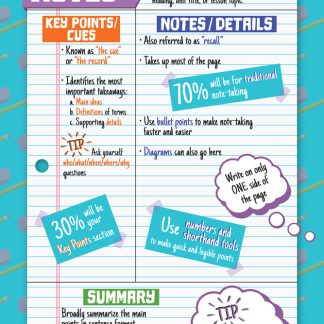 NOTES
heading, unit title, or lesson topic.
KEY POINTS/
CUES
• Known as "the cue"
or "the record"
• Identifies the most
important takeaways:
a. Main ideas
b. Definitions of terms
c. Supporting details
TIP
Ask yourself
who/what/when/where/why
questions
30% will be
your
Key Points section
NOTES/DETAILS
• Also referred to as "recall"
• Takes up most of the page
70% will be for traditional
note-taking
• Use bullet points to make note-taking
faster and easier
• Diagrams can also go here
Write on only
ONE side of
the page
Use numbers and
shorthand tools
to make quick and legible points
SUMMARY
Broadly summarize the main
points in sentence format
TIP